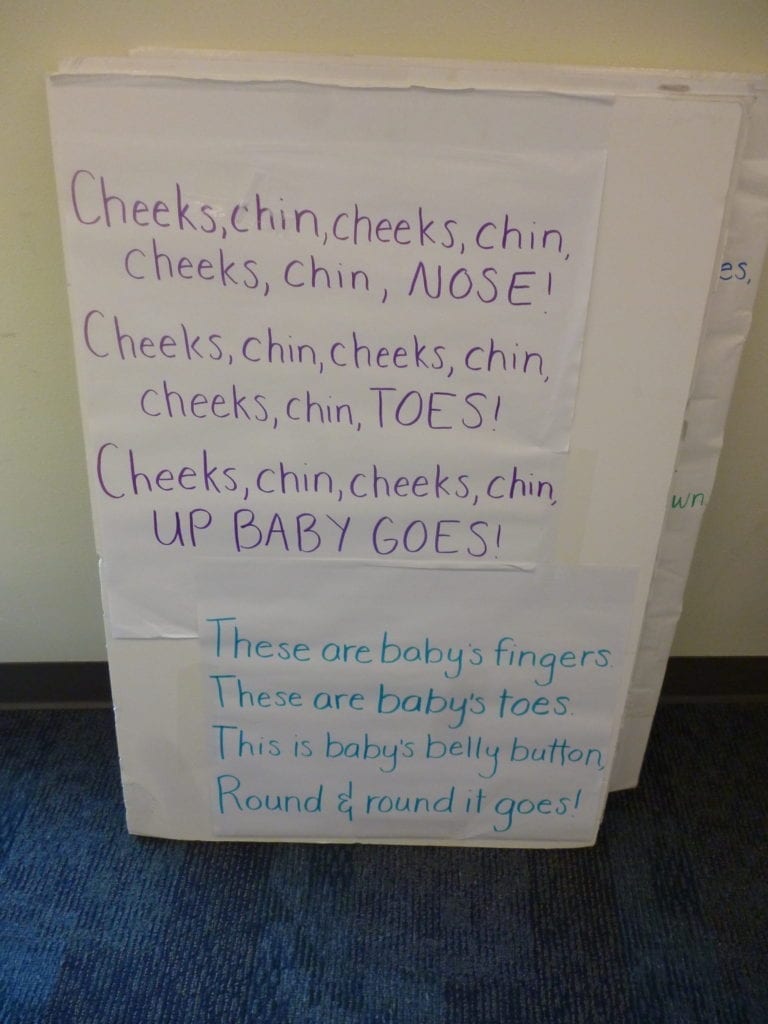 Cheeks, chin, cheeks, chin,
cheeks, chin, NOSE!
Cheeks, chin, cheeks, chin,
cheeks, chin, TOES!
Cheeks, chin, cheeks, chin,
UP BABY GOES!
These are baby's fingers.
These are baby's toes.
This is baby's belly button,
Round & round it goes!
es,
wn